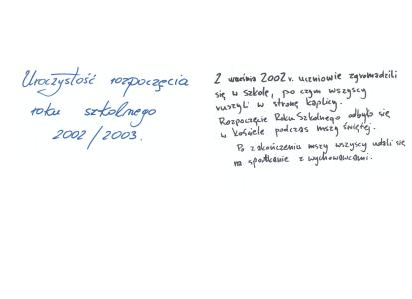 Uroczystość rozpoczęcia
roku szkolnego
2002/2003.
2 września 2002r. uczniowie zgromadzili
się w szkole, po czym wszyscy
ruszyli w stronę kaplicy.
Rozpoczęcie Roku Szkolnego odbyło się
w kościele podczas mszy świętej.
Po zakończeniu mszy wszyscy udali się
na spotkanie z wychowawcami.